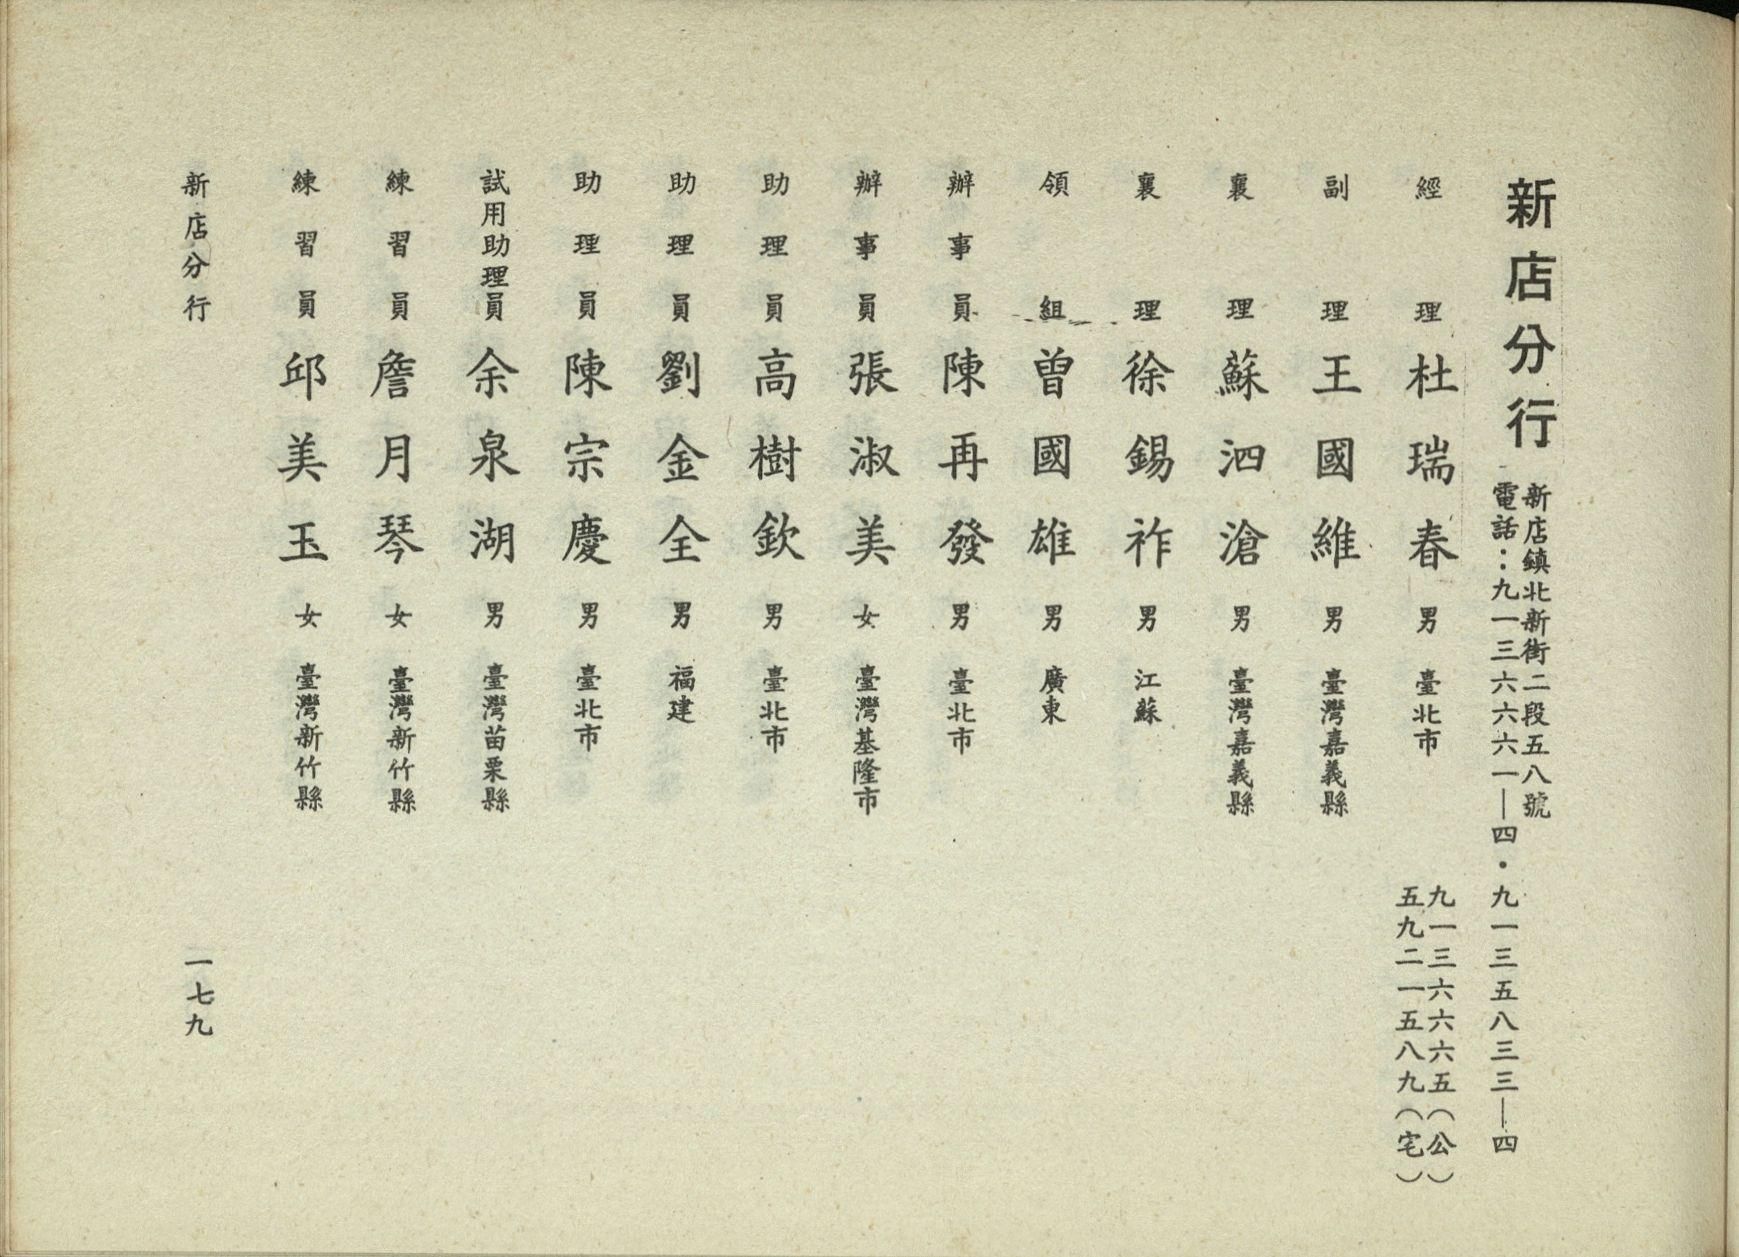 新店分行
新店鎮北新街二段五八號
電話：九一三六六六一—四・九一三五八三三—四
經理 杜瑞春 男 臺北市 九一三六六六五（公）
五九二一五八九（宅）
副理 王國維 男 臺灣嘉義縣
襄理 蘇泗滄 男 臺灣嘉義縣
襄理 徐錫祚 男 江蘇
領組 曾國雄 男 廣東
辦事員 陳再發 男 臺北市
辦事員 張淑美 女 臺灣基隆市
助理員 高樹欽 男 臺北市
助理員 劉金全 男 福建
助理員 陳宗慶 男 臺北市
試用助理員 余泉湖 男 臺灣苗栗縣
練習員 詹月琴 女 臺灣新竹縣
練習員 邱美玉 女 臺灣新竹縣
新店分行 一七九